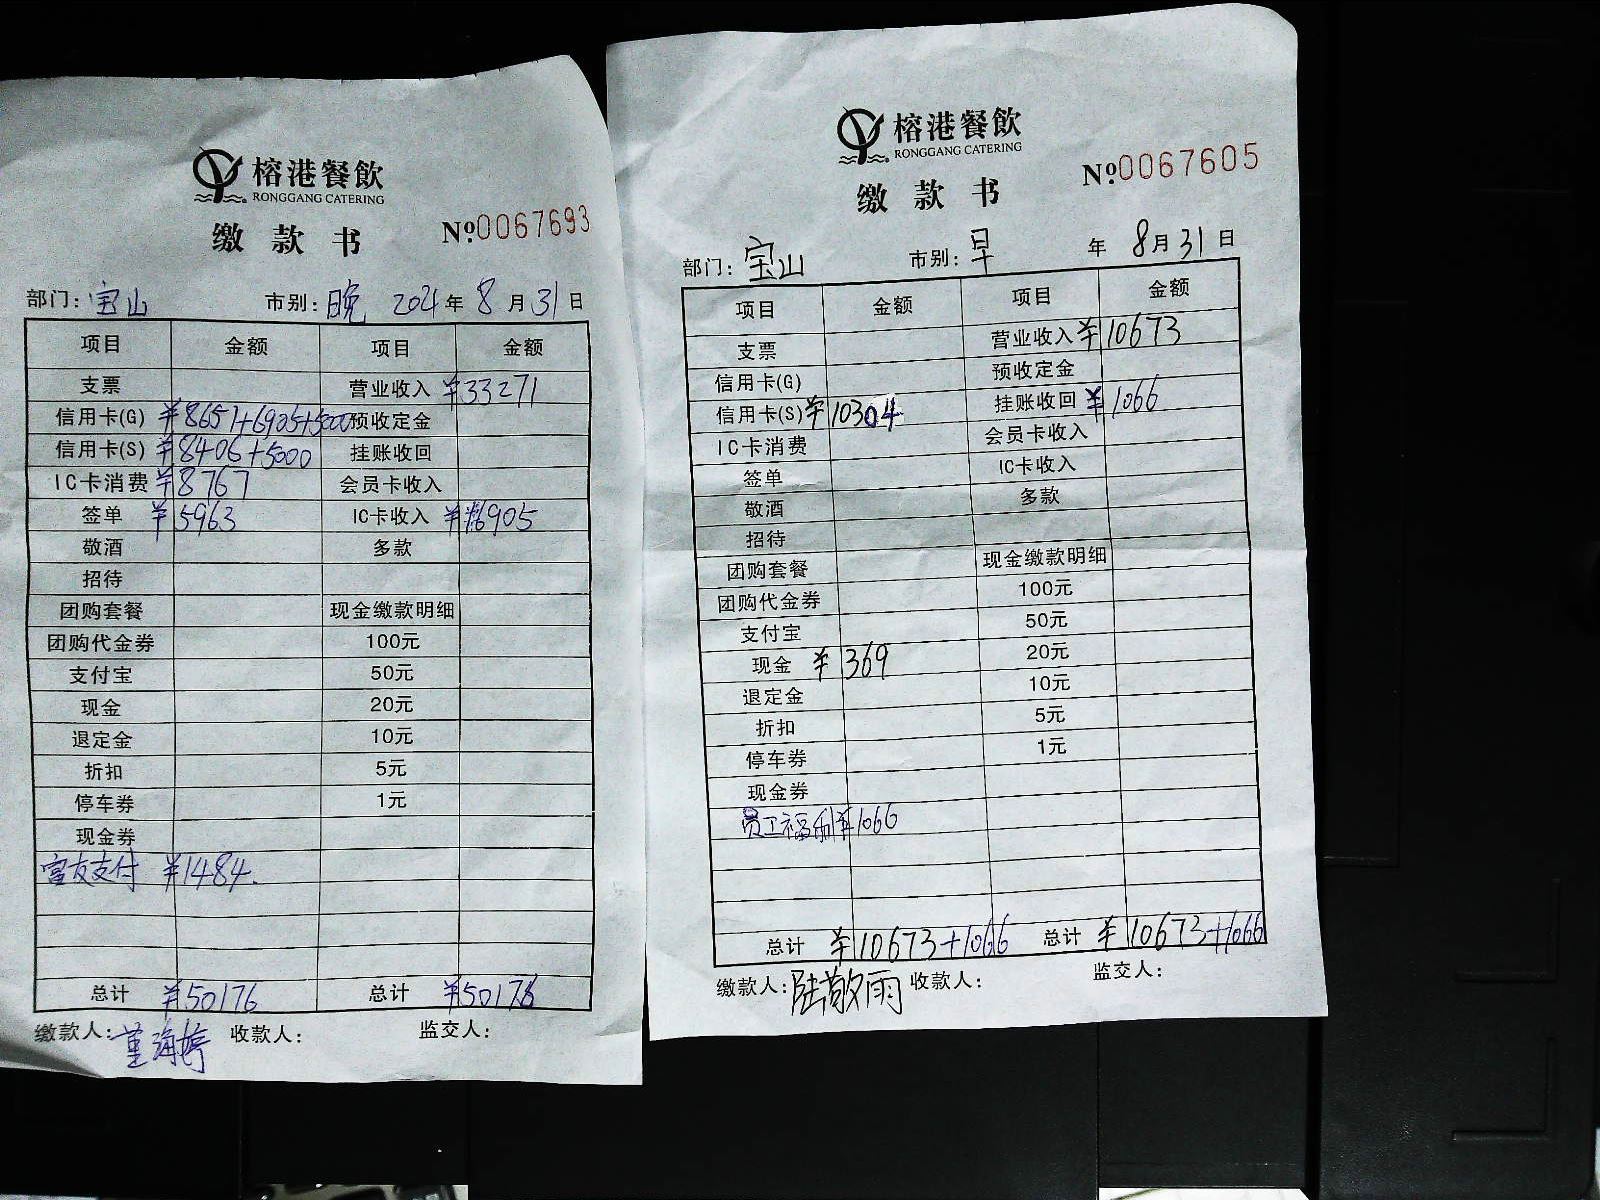 榕港餐飲
RONGGANG CATERING
缴款书
№0067693
部门：宝山 市别：晚 2021年8月31日
项目 金额 项目 金额
支票 营业收入 ¥33271
信用卡(G) ¥8651+6905+5000 预收定金
信用卡(S) ¥8406+5000 挂账收回
IC卡消费 ¥8767 会员卡收入
签单 ¥5963 IC卡收入 ¥16905
敬酒 多款
招待
团购套餐 现金缴款明细
团购代金券 100元
支付宝 50元
现金 20元
退定金 10元
折扣 5元
停车券 1元
现金券
富友支付 ¥1484.
总计 ¥50176 总计 ¥50176
缴款人：董海婷 收款人： 监交人：
榕港餐飲
RONGGANG CATERING
缴款书
№0067605
部门：宝山 市别：早 年8月31日
项目 金额 项目 金额
支票 营业收入 ¥10673
信用卡(G) 预收定金
信用卡(S) ¥10304 挂账收回 ¥1066
IC卡消费 会员卡收入
签单 IC卡收入
敬酒 多款
招待
团购套餐 现金缴款明细
团购代金券 100元
支付宝 50元
现金 ¥369 20元
退定金 10元
折扣 5元
停车券 1元
现金券
员工福利 ¥1066
总计 ¥10673+1066 总计 ¥10673+1066
缴款人：陆敬雨 收款人： 监交人：